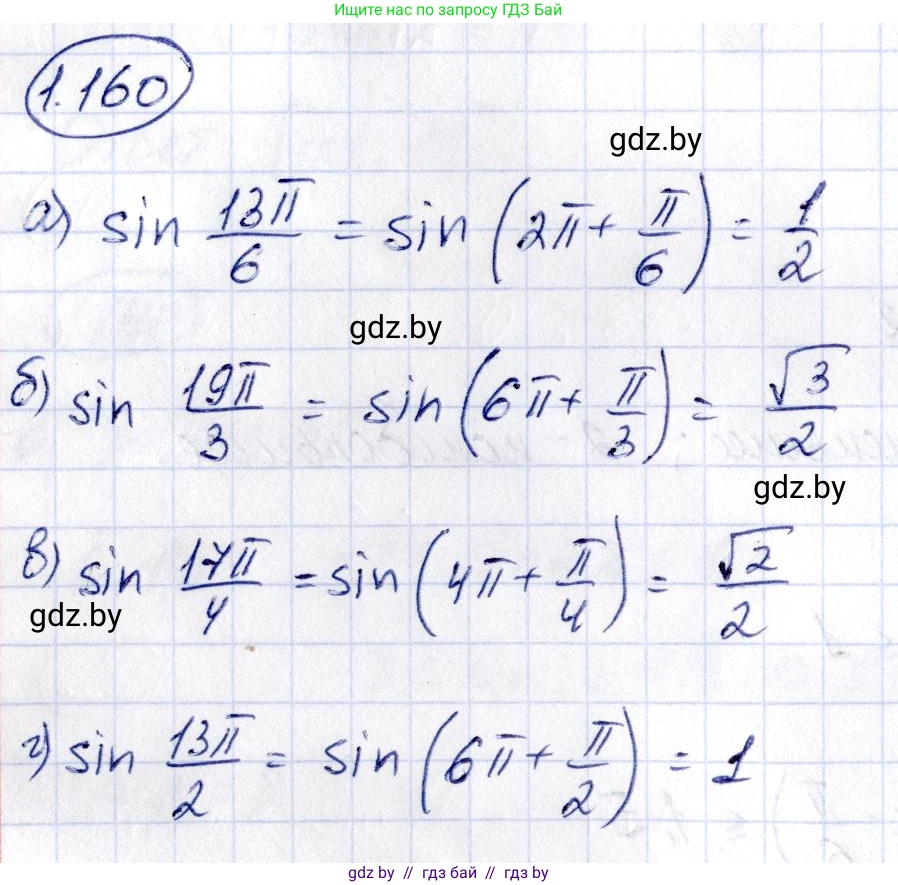 Ищите нас по запросу ГДЗ Бай
1.160
gdz.by
а) sin 13π/6 = sin (2π + π/6) = 1/2
gdz.by
б) sin 19π/3 = sin (6π + π/3) = √3/2
gdz.by
в) sin 17π/4 = sin (4π + π/4) = √2/2
gdz.by
г) sin 13π/2 = sin (6π + π/2) = 1
gdz by // гдз бай // gdz by